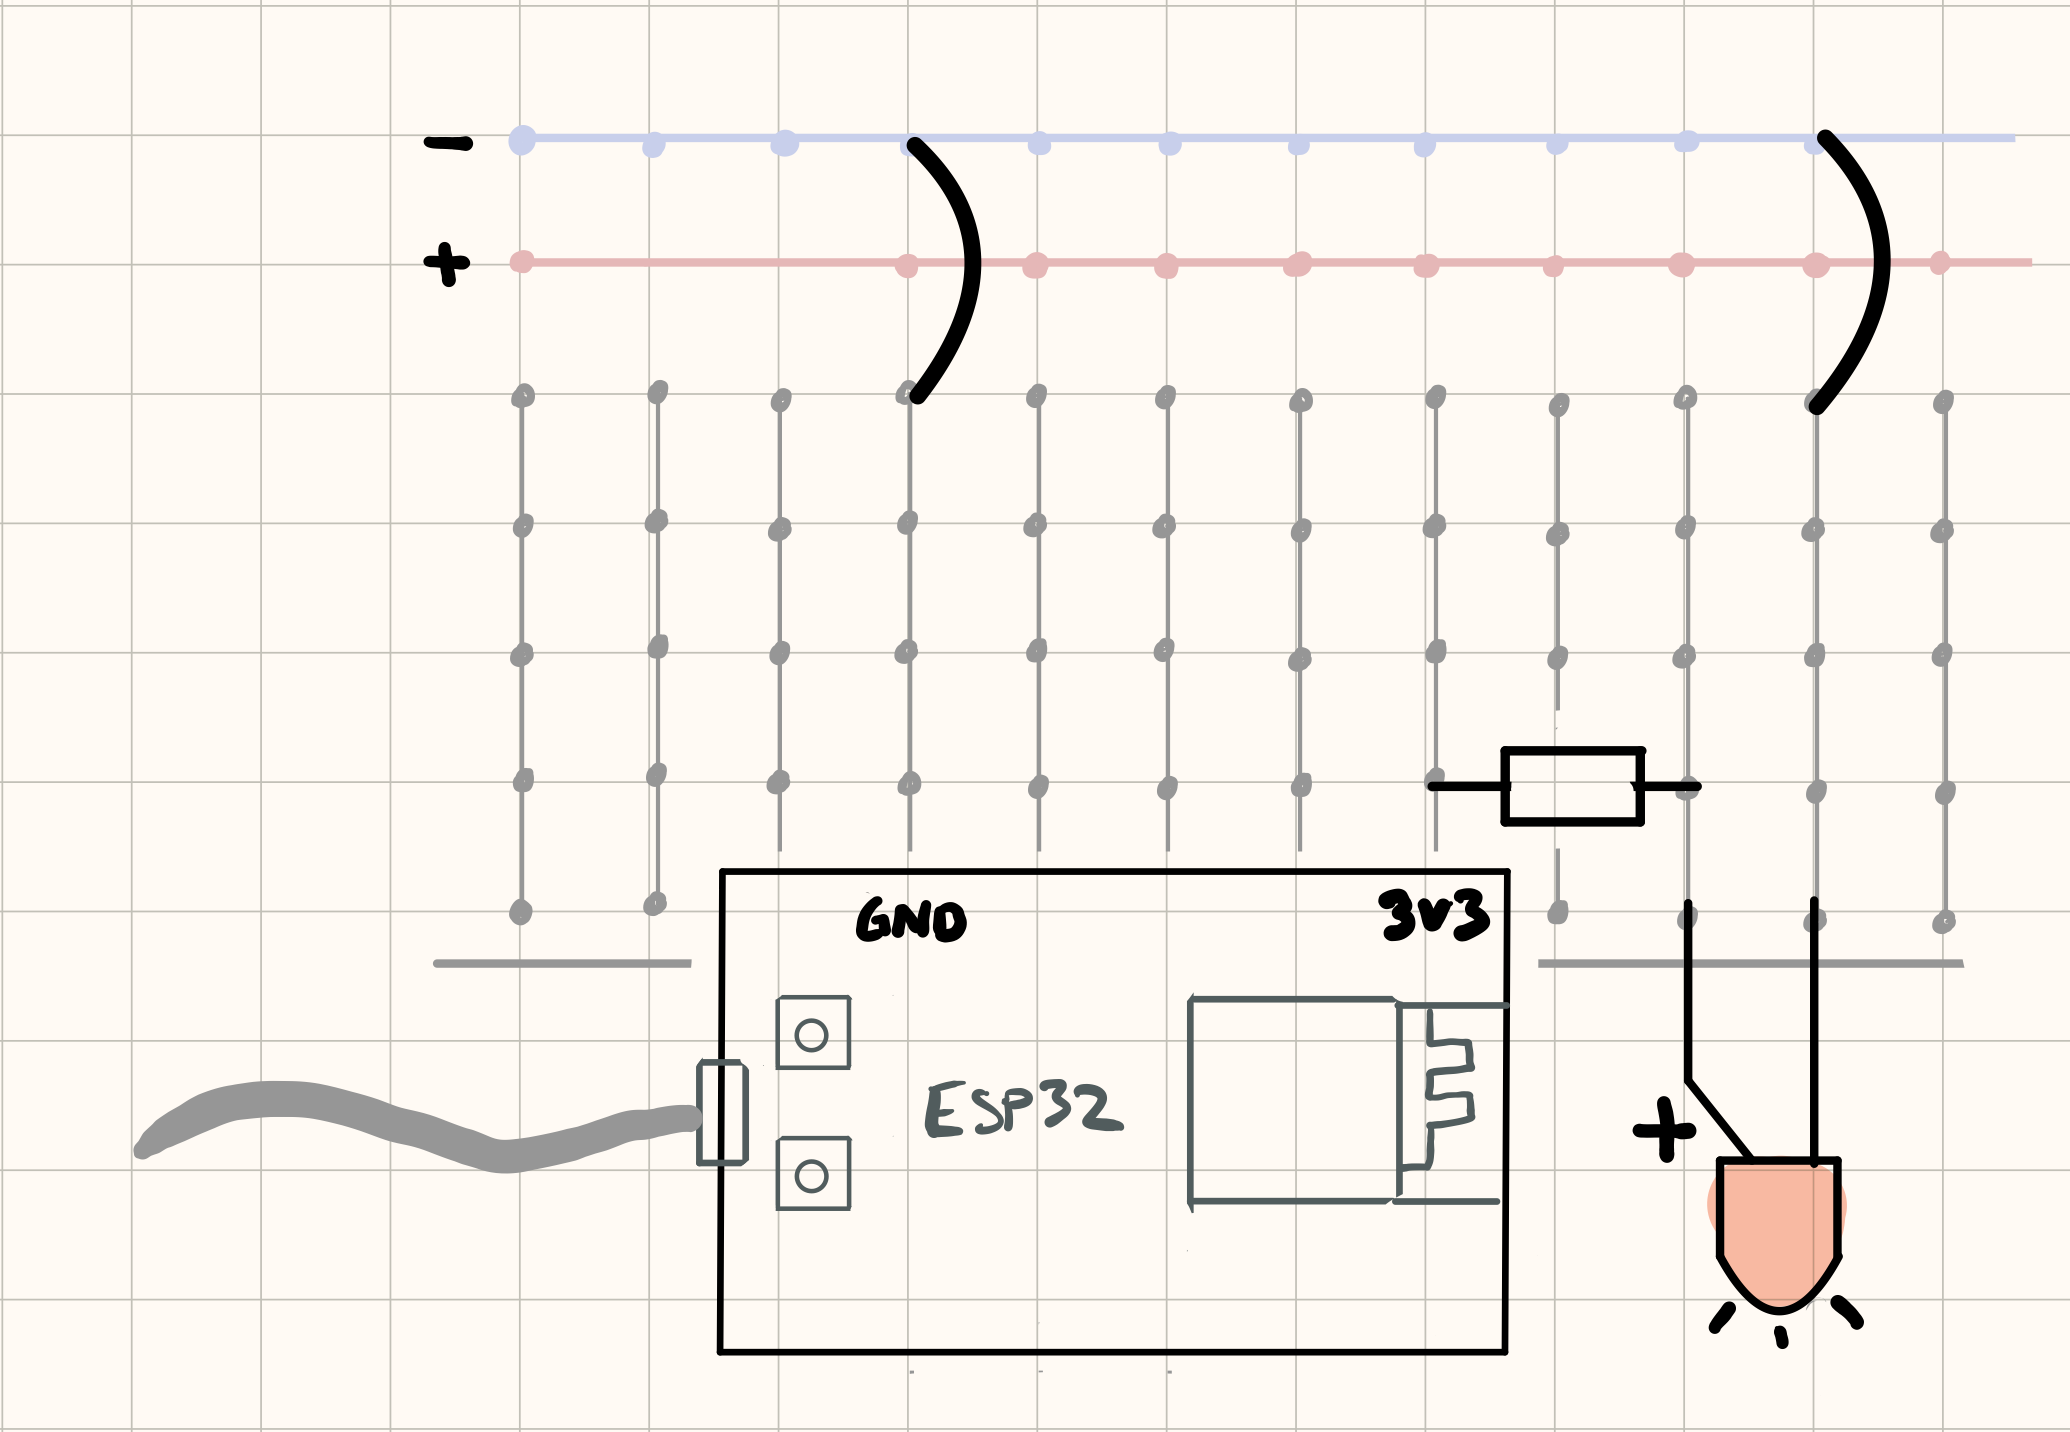 -
+
GND 3V3
ESP32
+